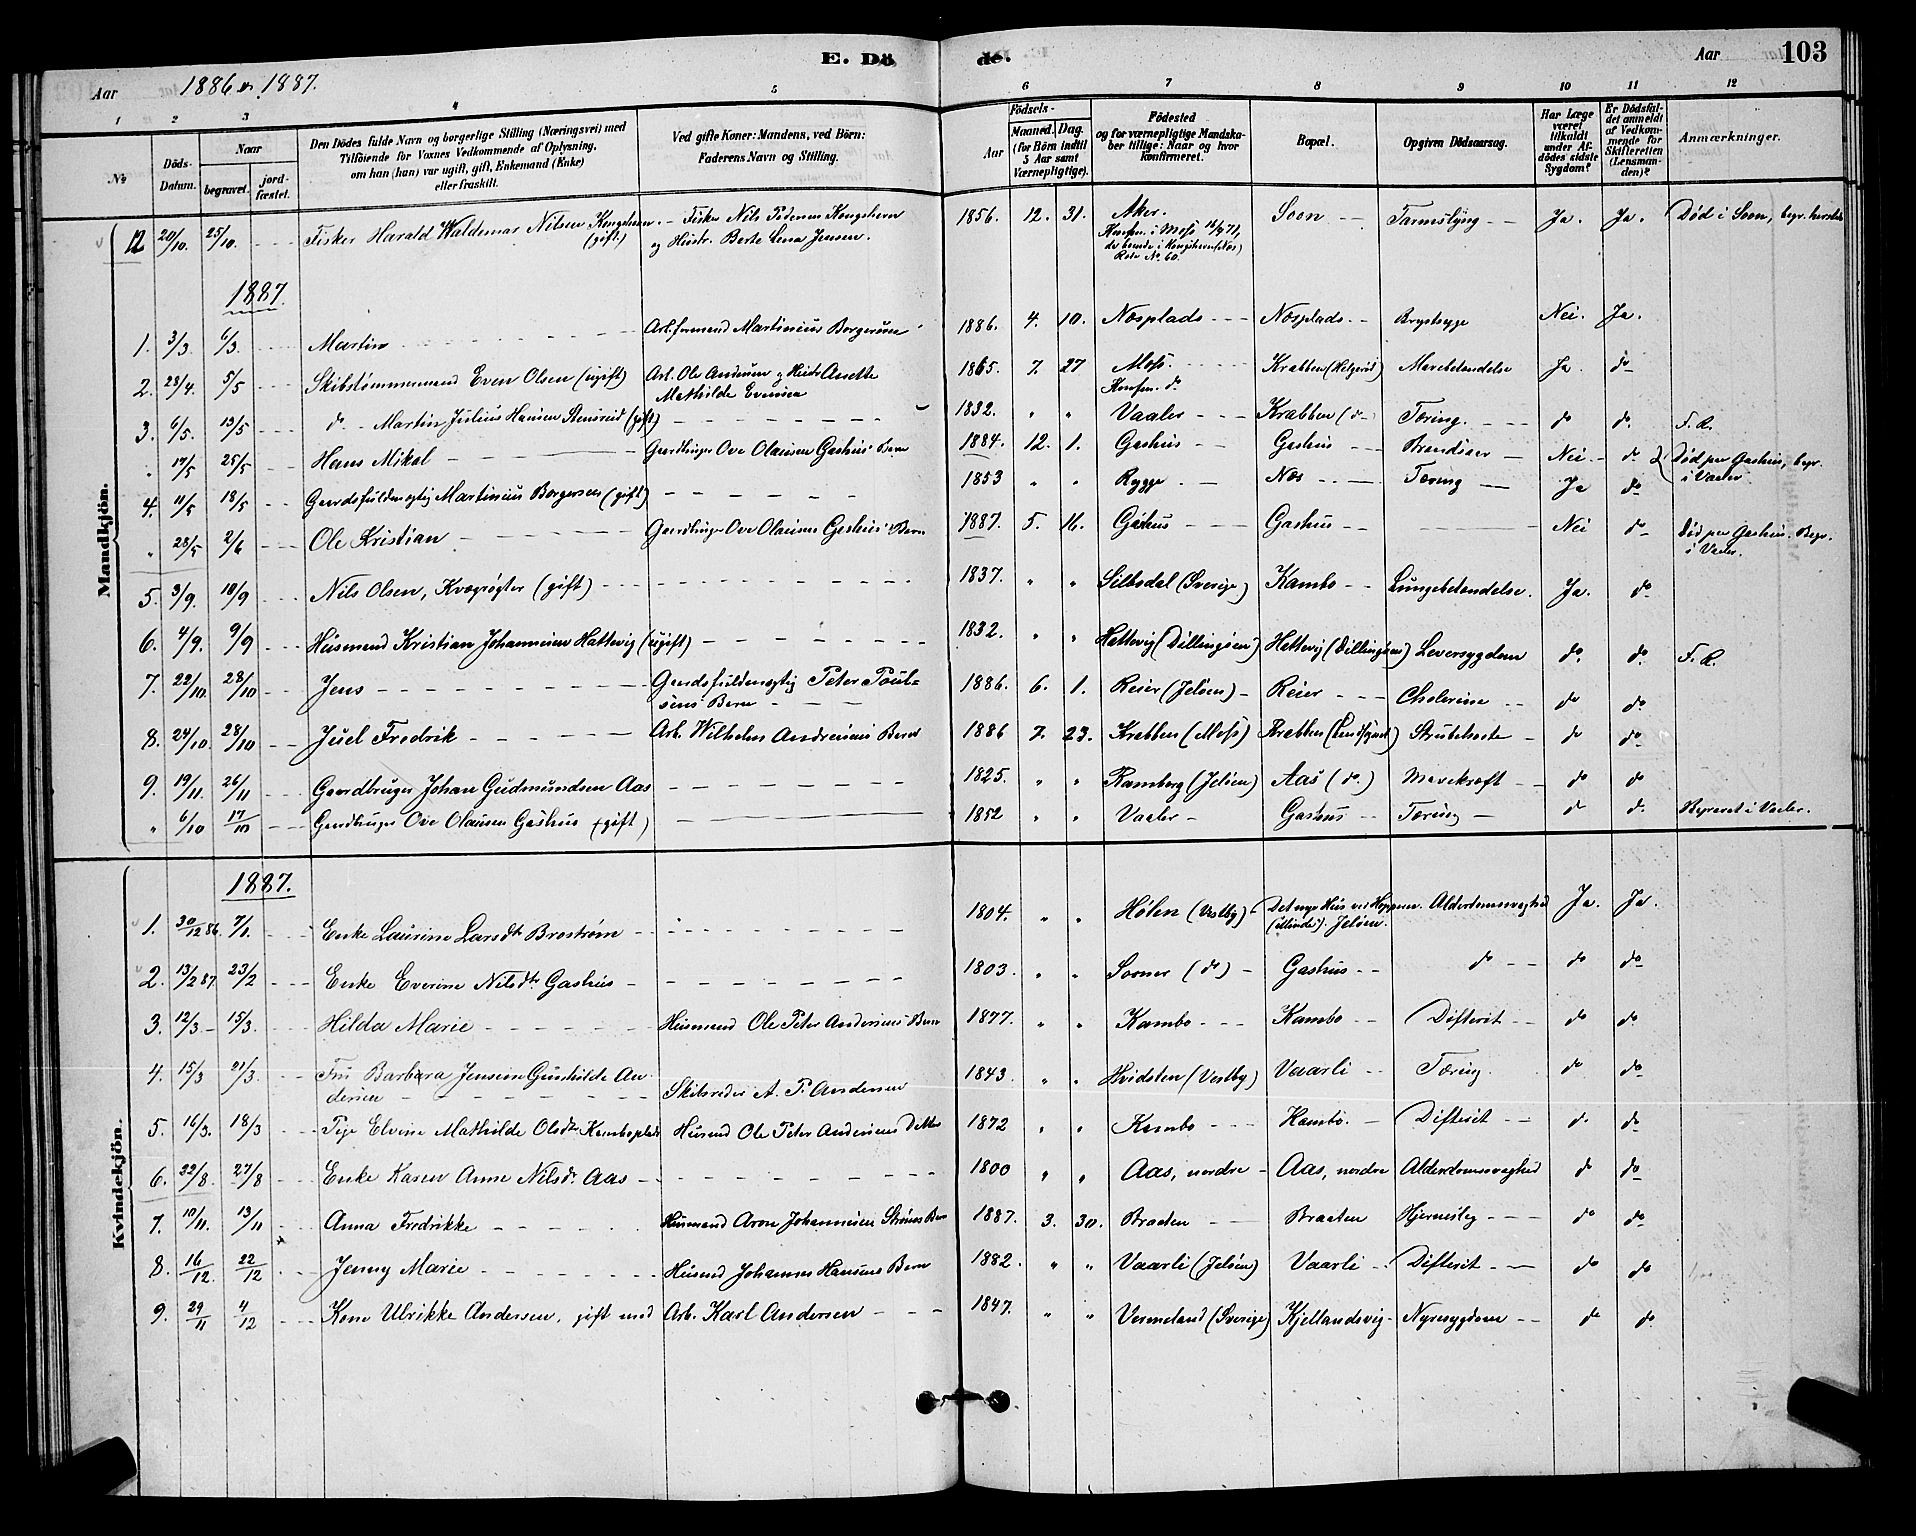 E. Döde.
Aar 1886 & 1887.
Aar 103
1 2 3 4 5 6 7 8 9 10 11 12
No
Döds-Datum.
Naar
begravet.
jord-fæstet.
Den Dödes fulde Navn og borgerlige Stilling (Næringsvei) med
Tilföiende for Voxnes Vedkommende af Oplysning,
om han (hun) var ugift, gift, Enkemand (Enke)
eller fraskilt.
Ved gifte Koner: Mandens, ved Börn:
Faderens Navn og Stilling.
Födsels-
Aar
Maaned. Dag.
(for Börn indtil
5 Aar samt
Værnepligtige).
Födested
og for værnepligtige Mandska-
ber tillige: Naar og hvor
konfirmeret.
Bopæl.
Opgiven Dödsaarsag.
Har Læge
været
tilkaldt
under Af-
dödes sidste
Sygdom?
Er Dödsfal-
det anmeldt
af Vedkom-
mende for
Skifteretten
(Lensman-
den)?
Anmærkninger.
Mandkjön.
12 20/10. 25/10. Fisker Harald Waldemar Nilsen Kongshavn (gift) Fisker Nils Pedersen Kongshavn og Hustr. Berte Lena Jensen. 1856. 12. 31. Aker. Soon Tarmslyng Ja. Ja. Död i Soon, begr. hersteds
Konfm. i Moss
Rode No. 60.
1887.
1. 3/3 6/3. Martin Arb.formand Martinius Borgersen 1886. 4. 10. Nosplads Nosplads Brystsyge Nei. Ja.
2. 28/4. 5/5 Skibstömmermand Even Olsen (ugift) Arb. Ole Andersen og Hustr Anette Mathilde Evensen 1865. 7. 27 Moss. Konfm. do Krabben (Helgerød) Mavebetændelse Ja. do
3. 6/5. 13/5 do Martin Julius Hansen Stensrud (gift) 1832. " " Vaaler Krabben (do) Tæring. do do. F. R.
" 17/5 25/5 Hans Mikal Gaardbruger Ove Olausen Gashus' Barn 1884. 12. 1. Gashus Gashus Brandsaar Nei. do Död paa Gashus, begr. i Vaaler
4. 11/5 18/5 Gaardsfuldmægtig Martinius Borgersen (gift) 1853 " " Rygge Nos Tæring Ja do
" 28/5 2/6 Ole Kristian Gaardbruger Ove Olausens Gashus' Barn 1887. 5. 16. Gashus Gashus Nei do död paa Gashus. Begr. i Vaaler.
5. 3/9. 10/9 Nils Olsen, Kvægrøgter (gift) 1837. " " Silbodal (Sverige) Kambo Lungebetændelse. Ja. do
6. 4/9. 9/9 Husmand Kristian Johannesen Hattevig (ugift) 1832. " " Hattevig (Dillingøen) Hattevig (Dillingøen) Leversygdom do. do. F. R.
7. 22/10. 28/10 Jens Gaardsfuldmægtig Peter Poulsens Barn 1886. 6. 1. Reier (Jeløen) Reier Cholerine do do.
8. 24/10. 28/10 Juel Fredrik Arb. Wilhelm Andreasens Barn 1886 7. 23. Krabben (Moss) Krabben (Landsognet) Strubehoste do do
9. 19/11. 26/11 Gaardbruger Johan Gudmundsen Aas 1825. " " Ramberg (Jeløen) Aas (do.) Mavekræft do do
" 6/10 17/10 Gaardbruger Ove Olausen Gashus (gift) 1852 " " Vaaler Gashus Tæring do do. Begravet i Vaaler.
Kvindekjön.
1887.
1. 30/12 86. 7/1. Enke Laurine Larsdtr Broström 1804. " " Hölen (Vestby) Det nye Hus ved Hoppern. (Alinde). Jeløen. Alderdomssvaghed Ja. Ja.
2. 13/2 87. 23/2 Enke Everine Nilsdtr Gashus 1803. " " Soner (do) Gashus do do do
3. 12/3 15/3. Hilda Marie Husmand Ole Peter Andersens Barn 1877. " " Kambo Kambo Difterit do do
4. 15/3 21/3. Fru Barbara Jensine Gunhilde Andersen Skibsreder A. P. Andersen 1843. " " Hvidsten (Vestby) Vaarli Tæring. do do
5. 16/3. 18/3 Pige Elvine Mathilde Olsdtr Kamboplads Husmd Ole Peter Andersens Datter 1872 " " Kambo Kambo. Difterit do do
6. 22/8. 27/8 Enke Karen Anne Nilsdr Aas 1800 " " Aas, nordre Aas, nordre Alderdomssvaghed do do
7. 10/11. 13/11 Anna Fredrikke Husmand Aron Johannesen Strøms Barn 1887. 3. 30. Braaten Braaten Hjerneslag do do
8. 16/12. 22/12 Jenny Marie Husmd Johannes Hansens Barn 1882. " " Vaarli (Jeløen) Vaarli Difterit do do
9. 29/11 4/12 Kone Ulrikke Andersen, gift med Arb. Karl Andersen 1847. " " Vermeland (Sverige) Kjellandsvig Nyresygdom do do